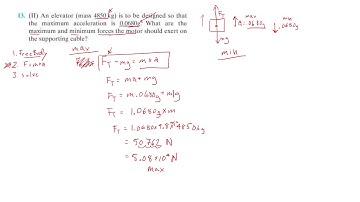 13. (II) An elevator (mass 4850 kg) is to be designed so
that the maximum acceleration is 0.0680g. What are the
maximum and minimum forces the motor should exert on
the supporting cable?
1. Free Body
2. F=ma
3. solve
max
F_T - mg = ma
F_T = ma + mg
F_T = m·.0680g + mg
F_T = 1.0680g × m
F_T = 1.0680×9.8 m/s²×4850kg
= 50,762 N
= 5.08×10⁴ N
max
F_T
mg
max
a = .0680g
min
.0680g
min